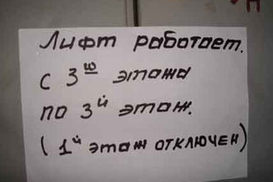 Лифт работает.
с 3ю этажа
по 3й этаж.
(1й этаж отключен)